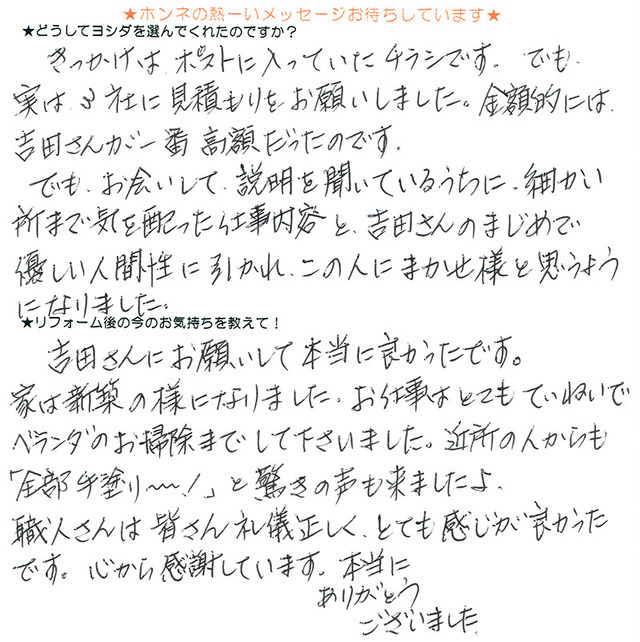 ★ホンネの熱ーいメッセージお待ちしています★
★どうしてヨシダを選んでくれたのですか？
きっかけは、ポストに入っていたチラシです。でも、
実は、3社に見積もりをお願いしました。金額的には、
吉田さんが一番高額だったのです。
でも、お会いして、説明を聞いているうちに、細かい
所まで気を配った仕事内容と、吉田さんのまじめで
優しい人間性に引かれ、この人にまかせ様と思うよう
になりました。
★リフォーム後の今のお気持ちを教えて！
吉田さんにお願いして本当に良かったです。
家は新築の様になりました。お仕事はとてもていねいで
ベランダのお掃除までして下さいました。近所の人からも
「全部手塗り〜！」と驚きの声も来ましたよ。
職人さんは皆さん礼儀正しく、とても感じが良かった
です。心から感謝しています。本当に
ありがとう
ございました